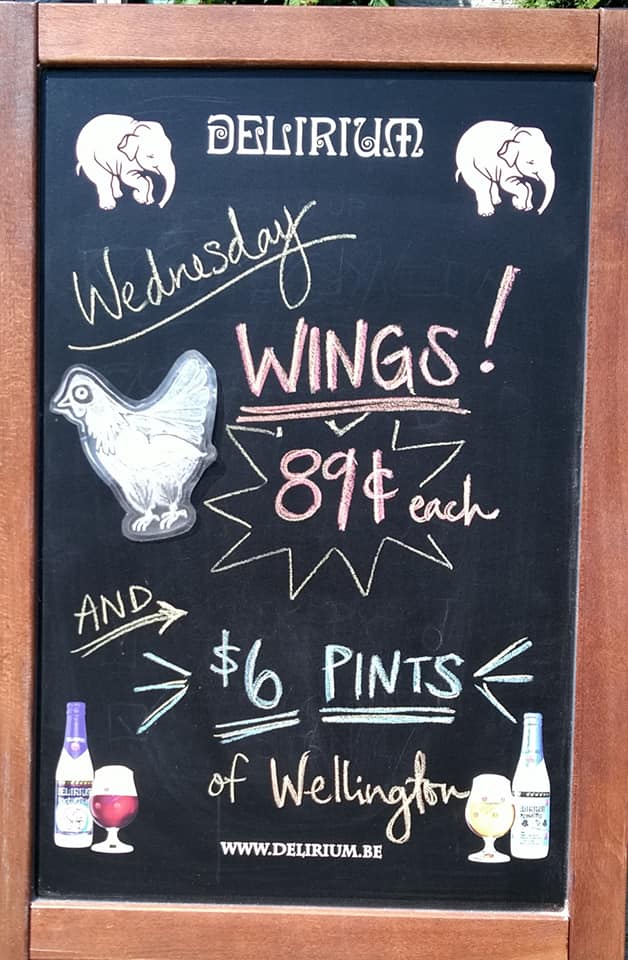 DELIRIUM
Wednesday
WINGS!
89¢ each
AND
$6 PINTS
of Wellington
WWW.DELIRIUM.BE